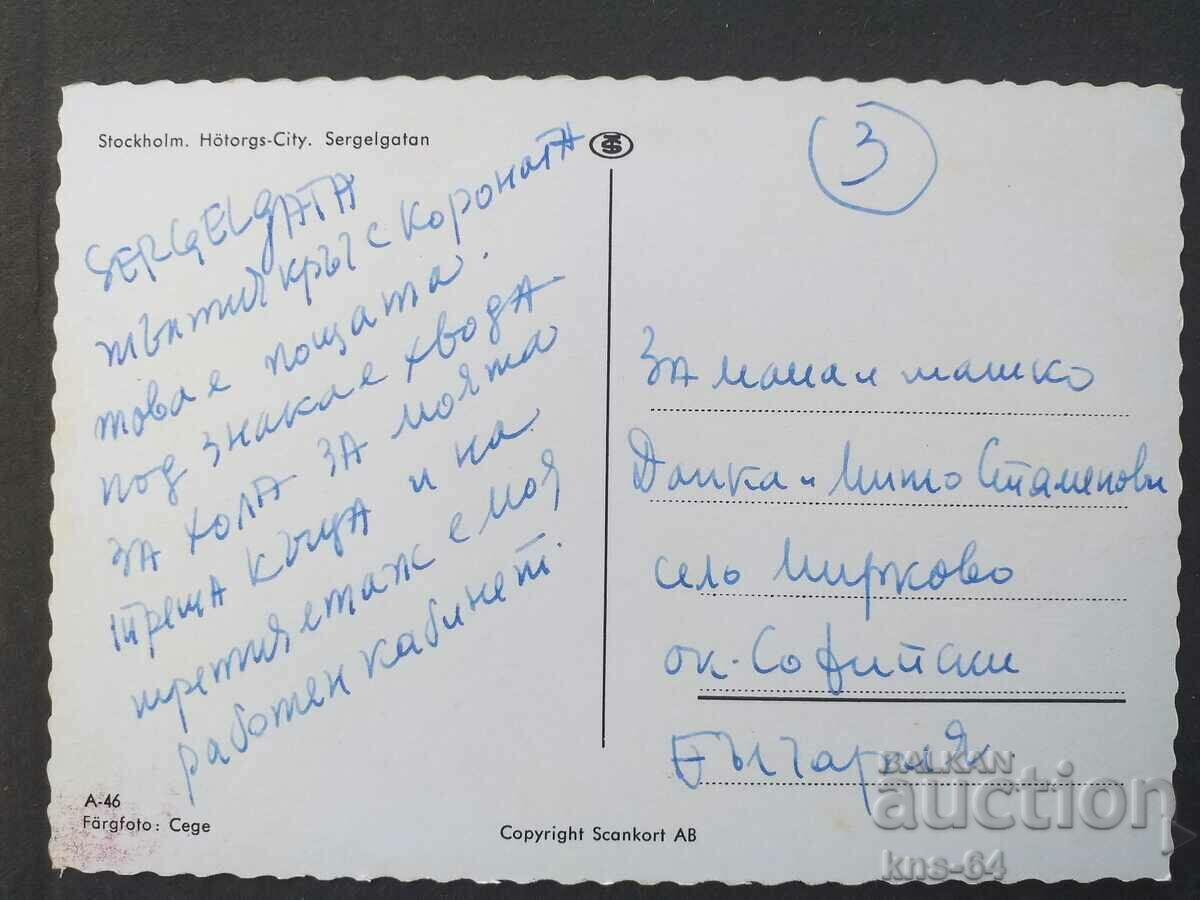 Stockholm. Hötorgs-City. Sergelgatan
SERGELgATA
жълтия кръг с короната
това е пощата.
под знака е хвода
ЗА ХОЛА ЗА моята
треша къща и на
третия етаж е моя
работен кабинет.
A-46
Färgfoto: Cege
3
ЗА мама и
Данка и Мито Стаменови
село Мирково
ок. Софийски
България
Copyright Scankort AB
BALKAN
auction
kns-64